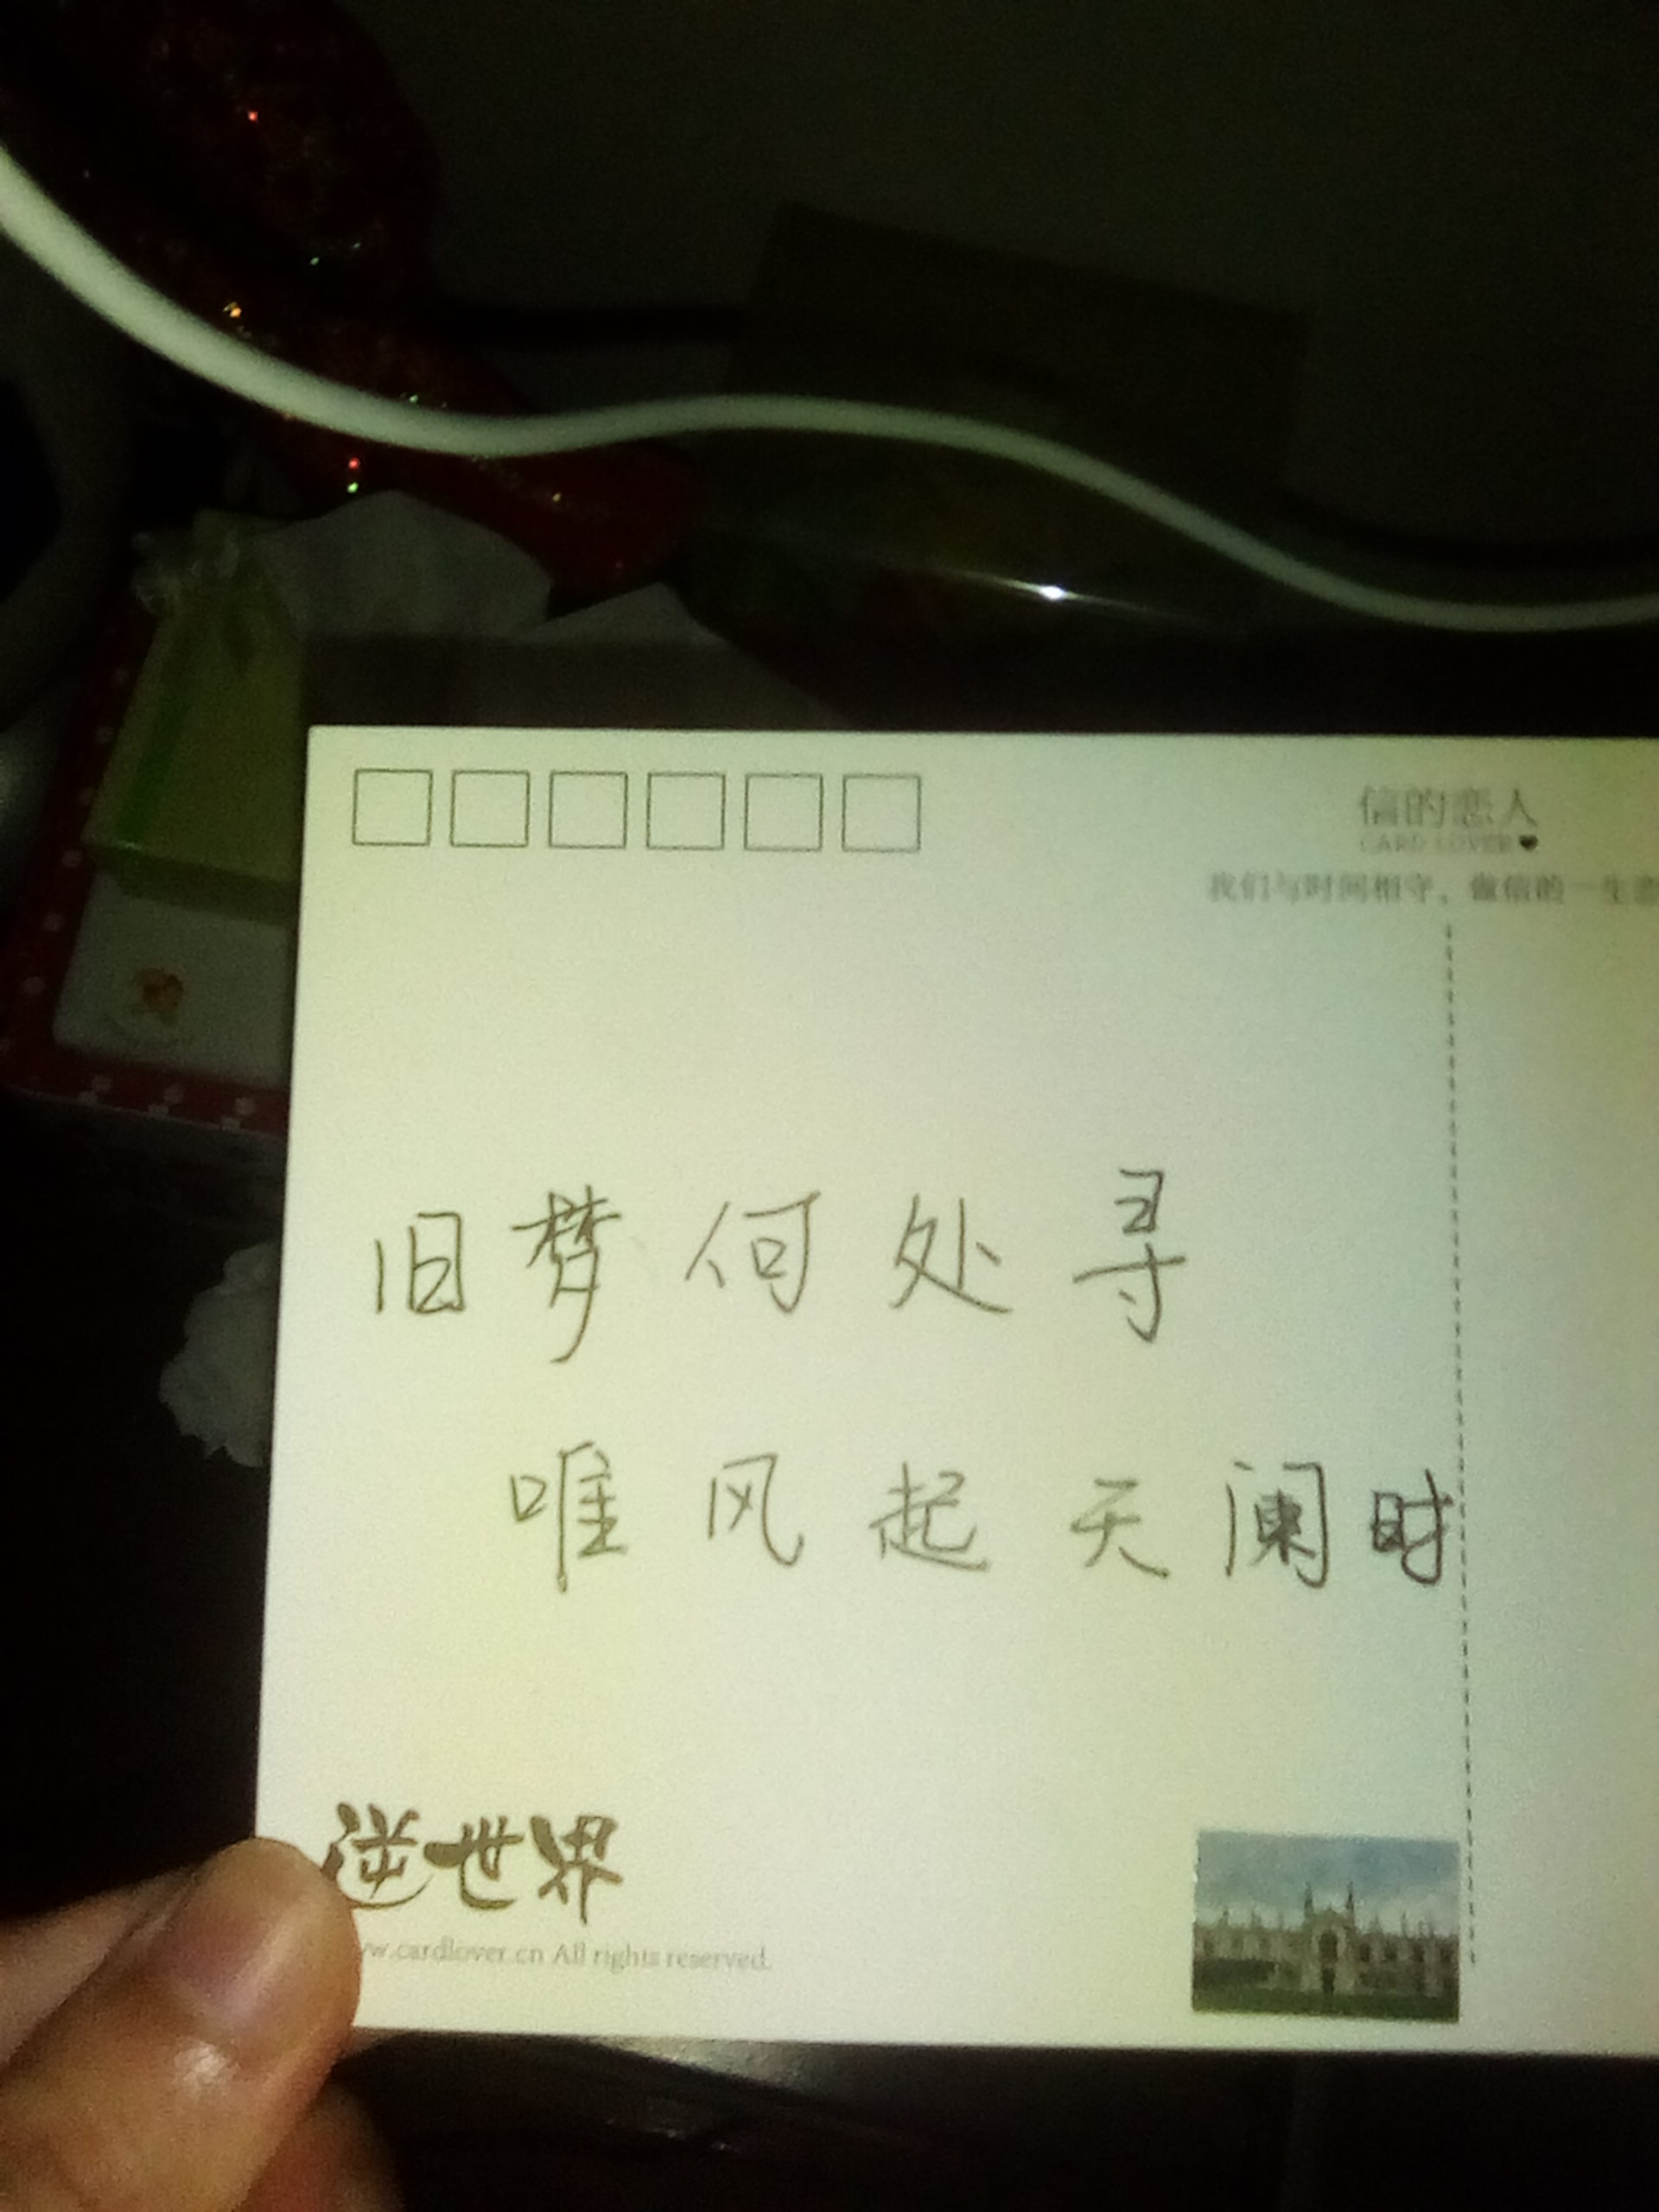 信的恋人
CARD LOVER
我们与时间相守，做信的一生恋
旧梦何处寻
唯风起天阑时
逆世界
w.cardlover.cn All rights reserved.